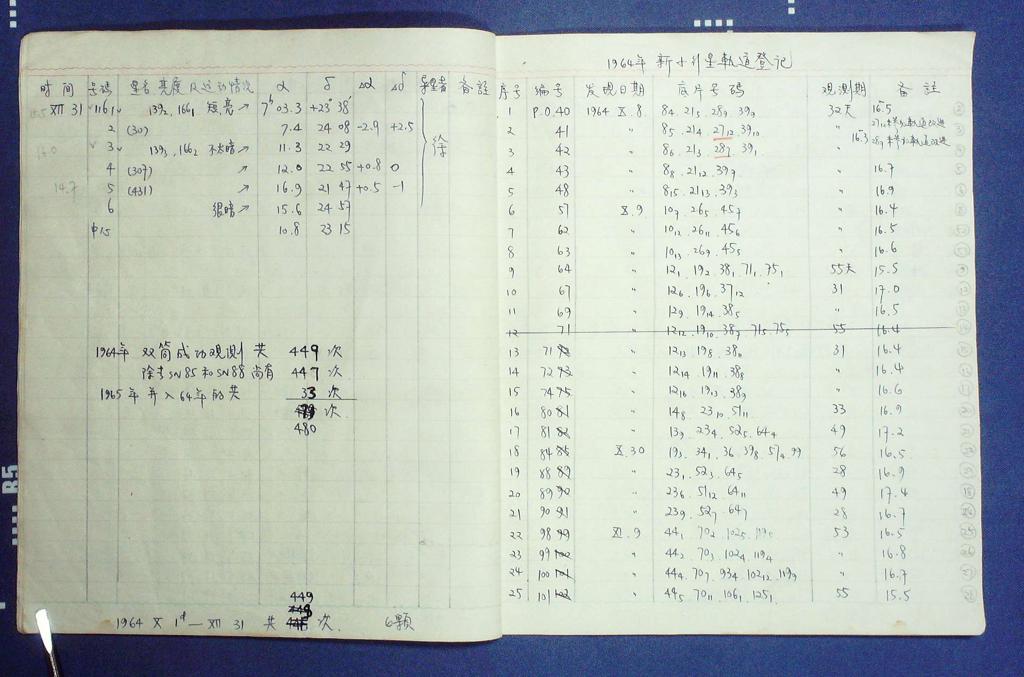 时间 号码 星名亮度及运动情况 α δ Δα Δδ 导星者 备註
XII 31 1161 139₂, 166₁ 短,亮↗ 7ʰ03.3 +23°38′ 徐
2 (30) ↗ 7.4 24 08 -2.9 +2.5
3 139₃, 166₂ 不太暗↗ 11.3 22 29
4 (307) ↗ 12.0 22 55 +0.8 0
14.7 5 (431) ↗ 16.9 21 47 +0.5 -1
6 很暗↗ 15.6 24 57
φ15 10.8 23 15
1964年 双筒成功观测 共 449 次
除去SN85和SN88 尚有 447 次
1965年并入64年的共 33 次
次
480
449
1964 X 1ᵈ — XII 31 共 次. 6颗
1964年新小行星軌道登记
序号 编号 发现日期 底片号码 观测期 备註
1 P.O.40 1964 X.8 8₂. 21₅. 28₉. 39₂ 32天 16.5
2 41 〃 8₅. 21₄. 27₁₂. 39₁₀ 〃
3 42 〃 8₆. 21₃. 28₇. 39₁ 〃 16.3
4 43 〃 8₈. 21₁₂. 39₉ 〃 16.7
5 48 〃 8₁₅. 21₁₃. 39₃ 〃 16.9
6 57 X.9 10₇. 26₅. 45₇ 〃 16.4
7 62 〃 10₁₂. 26₁₁. 45₆ 〃 16.5
8 63 〃 10₁₃. 26₉. 45₅ 〃 16.6
9 64 〃 12₁. 19₂. 38₁. 71₁. 75₁ 55天 15.5
10 67 〃 12₆. 19₆. 37₁₂ 31 17.0
11 69 〃 12₉. 19₁₄. 38₅ 〃 16.5
12 71 〃 12₁₂. 19₁₀. 38₇. 71₅. 75₅ 55 16.4
13 71 〃 12₁₃. 19₈. 38₆ 31 16.4
14 72 〃 12₁₄. 19₁₁. 38₈ 〃 16.4
15 74 〃 12₁₆. 19₁₃. 38₉ 〃 16.6
16 80 〃 14₈. 23₁₀. 51₁₁ 33 16.9
17 81 〃 13₉. 23₄. 52₅. 64₄ 49 17.2
18 84 X.30 19₃. 34₁. 36. 39₈. 57₄. 99 56 16.5
19 88 〃 23₁. 52₃. 64₅ 28 16.9
20 89 〃 23₆. 51₁₂. 64₁₁ 49 17.4
21 90 〃 23₉. 52₇. 64₇ 28 16.7
22 98 XI.9 44₁. 70₂. 102₅. 119₅ 53 16.5
23 99 〃 44₂. 70₃. 102₄. 119₄ 〃 16.8
24 100 〃 44₄. 70₇. 93₄. 102₁₂. 119₉ 〃 16.7
25 101 〃 44₅. 70₁₁. 106₁. 125₁ 55 15.5
B5